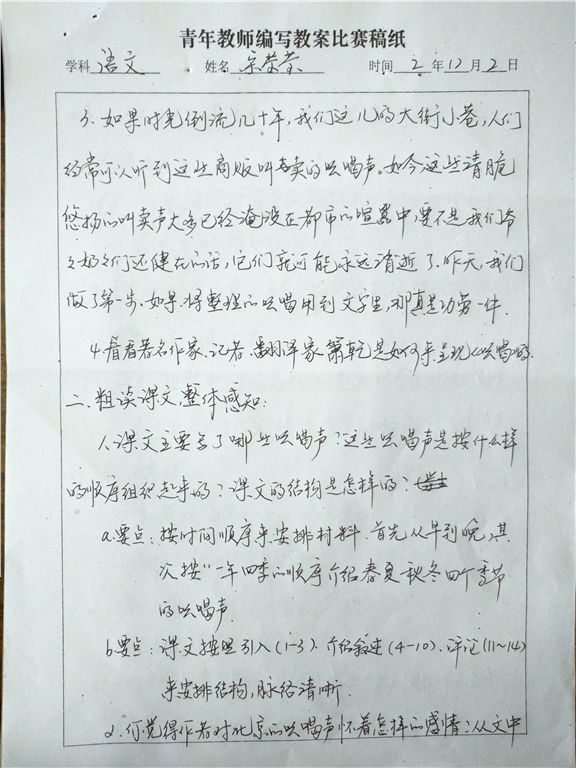 青年教师编写教案比赛稿纸
学科 语文 姓名 宋荣荣 时间 2 年 12 月 2 日
3. 如果时光倒流几十年，我们这儿的大街小巷，人们
经常可以听到这些商贩叫卖的吆喝声。如今，这些清脆
悠扬的叫卖声大多已经淹没在都市的喧嚣中，要不是我们爷
爷奶奶们还健在的话，它们就可能永远消逝了。昨天，我们
做了第一步，如果将整理的吆喝用到文字里，那真是功劳一件。
4. 看看著名作家、记者、翻译家萧乾是如何来呈现《吆喝》的。
二、粗读课文，整体感知：
1、课文主要写了哪些吆喝声？这些吆喝声是按什么样
的顺序组织起来的？课文的结构是怎样的？
a.要点：按时间顺序来安排材料。首先从早到晚，其
次按“一年四季的顺序介绍春夏秋冬四个季节
的吆喝声。
b.要点：课文按照引入（1-3）、介绍叙述（4-10）、评论（11~14）
来安排结构，脉络清晰。
2. 你觉得作者对北京的吆喝声怀着怎样的感情？从文中